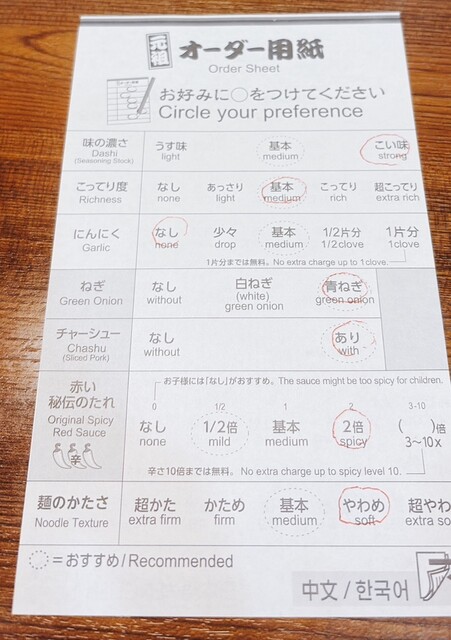 元祖 オーダー用紙
Order Sheet
お好みに○をつけてください
Circle your preference
味の濃さ うす味 基本 こい味
Dashi light medium strong
(Seasoning Stock)
こってり度 なし あっさり 基本 こってり 超こってり
Richness none light medium rich extra rich
にんにく なし 少々 基本 1/2片分 1片分
Garlic none drop medium 1/2clove 1clove
1片分までは無料。No extra charge up to 1clove.
ねぎ なし 白ねぎ 青ねぎ
Green Onion without (white) green onion green onion
チャーシュー なし あり
Chashu without with
(Sliced Pork)
お子様には「なし」がおすすめ。The sauce might be too spicy for children.
0 1/2 1 2 3-10
赤い秘伝のたれ なし 1/2倍 基本 2倍 ( )倍
Original Spicy Red Sauce none mild medium spicy 3~10x
辛
辛さ10倍までは無料。No extra charge up to spicy level 10.
麺のかたさ 超かた かため 基本 やわめ 超やわ
Noodle Texture extra firm firm medium soft extra so
=おすすめ/Recommended
中文 / 한국어